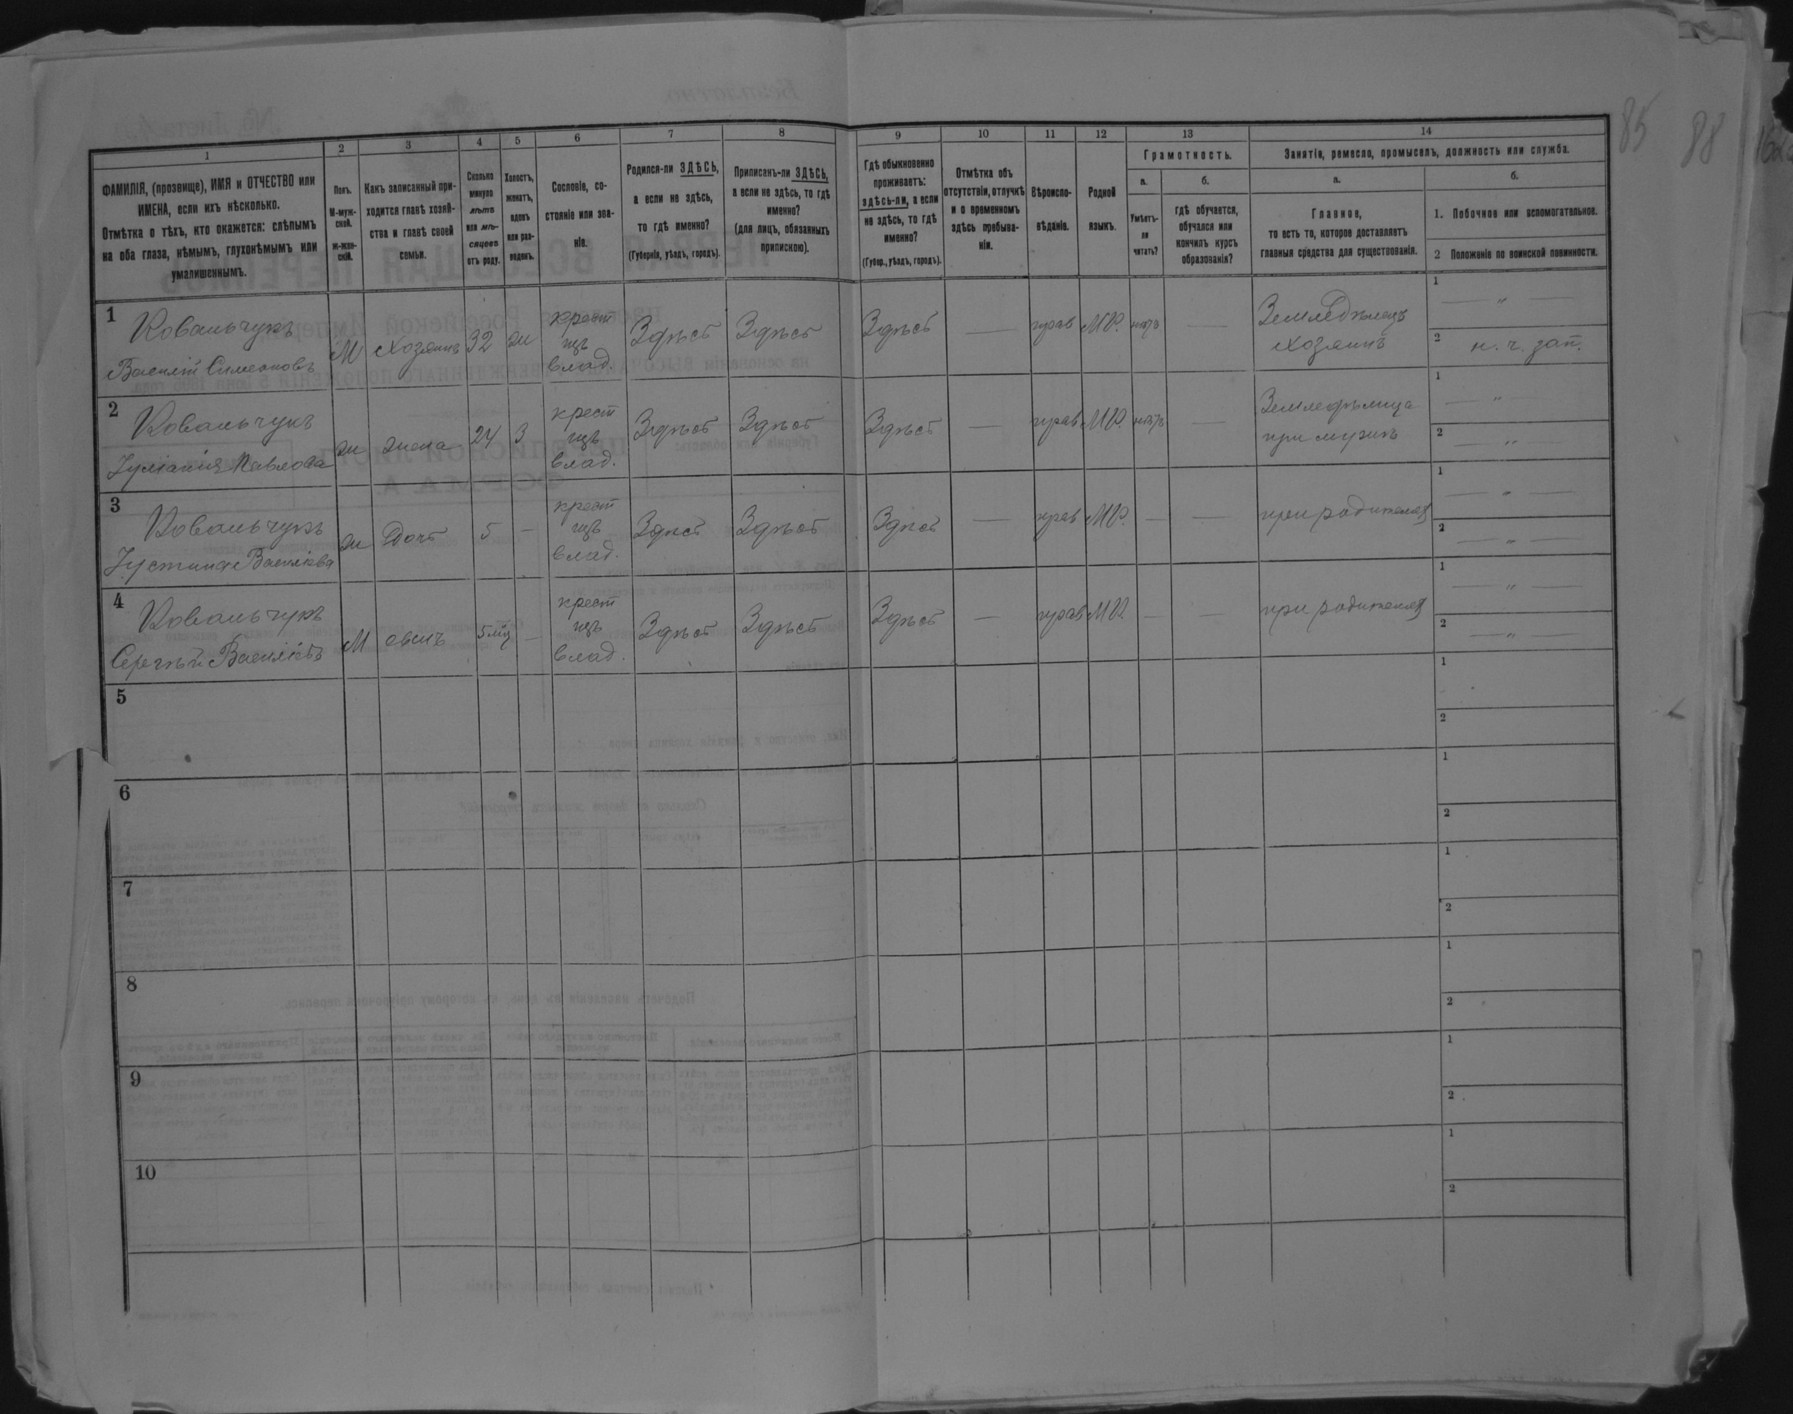 85
88
1
2
3
4
5
6
7
8
9
10
11
12
13
14
ФАМИЛІЯ, (прозвище), ИМЯ и ОТЧЕСТВО или
ИМЕНА, если ихъ нѣсколько.
Отмѣтка о тѣхъ, кто окажется: слѣпымъ
на оба глаза, нѣмымъ, глухонѣмымъ или
умалишеннымъ.
Полъ.
М-муж-
ской.
Ж-жен-
скій.
Какъ записанный при-
ходится главѣ хозяй-
ства и главѣ своей
семьи.
Сколько
минуло
лѣтъ
или мѣ-
сяцевъ
отъ роду.
Холостъ,
женатъ,
вдовъ
или раз-
веденъ.
Сословіе, со-
стояніе или зва-
ніе.
Родился-ли ЗДѢСЬ,
а если не здѣсь,
то гдѣ именно?
(Губернія, уѣздъ, городъ).
Приписанъ-ли ЗДѢСЬ,
а если не здѣсь, то гдѣ
именно?
(для лицъ, обязанныхъ
припискою).
Гдѣ обыкновенно
проживаетъ:
здѣсь-ли, а если
не здѣсь, то гдѣ
именно?
(Губер., уѣздъ, городъ).
Отмѣтка объ
отсутствіи, отлучкѣ
и о временномъ
здѣсь пребыва-
ніи.
Вѣроиспо-
вѣданіе.
Родной
языкъ.
Грамотность.
а.
Умѣетъ-
ли
читать?
б.
гдѣ обучается,
обучался или
кончилъ курсъ
образованія?
Занятіе, ремесло, промыселъ, должность или служба.
а.
Главное,
то есть то, которое доставляетъ
главныя средства для существованія.
б.
1. Побочное или вспомогательное.
2 Положеніе по воинской повинности.
1
Ковальчукъ
Василій Симеоновъ
М
Хозяинъ
32
ж
крест
изъ
влад.
Здѣсь
Здѣсь
Здѣсь
—
прав
МР.
нѣтъ
—
Земледѣлецъ
Хозяинъ
1
— " —
2
н. ч. зап.
2
Ковальчукъ
Іуліанія Павлова
ж
жена
24
З
крест
изъ
влад.
Здѣсь
Здѣсь
Здѣсь
—
прав
МР.
нѣтъ
—
Земледѣлица
при мужѣ
1
"
2
— " —
3
Ковальчукъ
Іустина Василіева
ж
Дочь
5
—
крест
изъ
влад.
Здѣсь
Здѣсь
Здѣсь
—
прав
МР.
—
—
при родителяхъ
1
— " —
2
— " —
4
Ковальчукъ
Сергѣй Василіевъ
М
сынъ
5 мц
—
крест
изъ
влад.
Здѣсь
Здѣсь
Здѣсь
—
прав
МР.
—
—
при родителяхъ
1
— " —
2
— " —
5
1
2
6
1
2
7
1
2
8
1
2
9
1
2
10
1
2